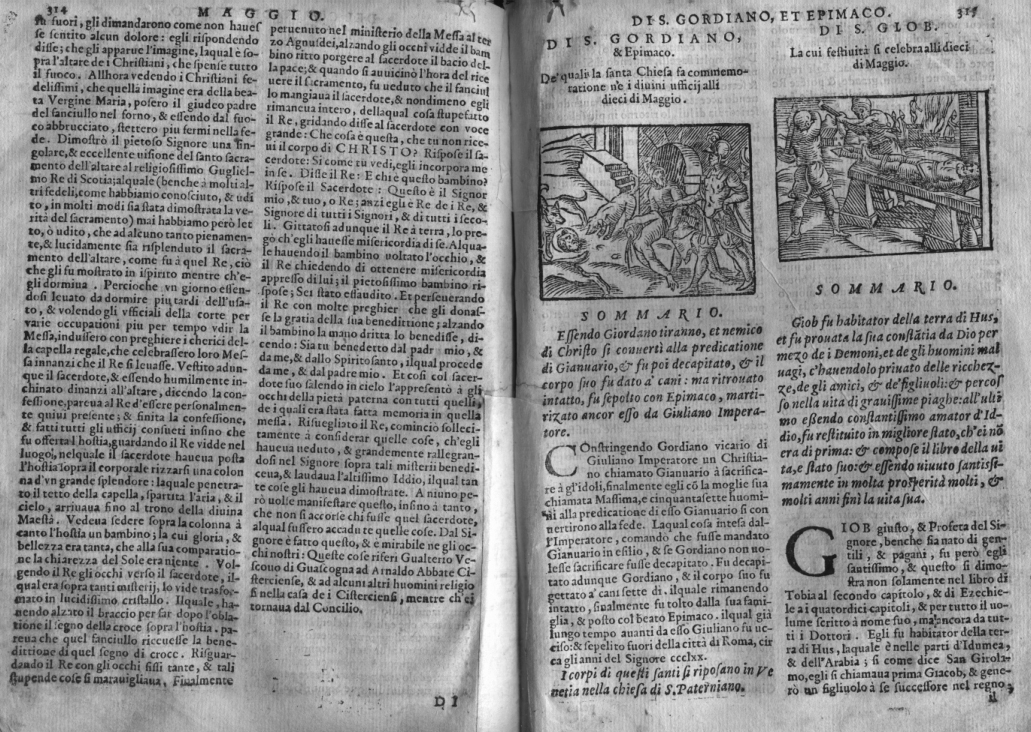 314
MAGGIO.
fuori, gli dimandarono come non haues
se sentito alcun dolore: egli rispondendo
disse; che gli apparue l'imagine, laqual è so-
pra l'altare de i Christiani, che spense tutto
il fuoco. Allhora vedendo i Christiani fe-
delissimi, che quella imagine era della bea-
ta Vergine Maria, posero il giudeo padre
del fanciullo nel forno, & essendo dal fuo-
co abbrucciato, stettero piu fermi nella fe-
de. Dimostrò il pietoso Signore una sin-
golare, & eccellente uisione del santo sacra-
mento dell'altare al religiosissimo Gugliel-
mo Re di Scotia; alquale (benche à molti al-
tri fedeli, come habbiamo conosciuto, & udi
to, in molti modi sia stata dimostrata la ve-
rità del sacramento) mai habbiamo però let
to, ò udito, che ad alcuno tanto pienamen-
te, & lucidamente sia risplenduto il sacra-
mento dell'altare, come fu à quel Re, ciò
che gli fu mostrato in ispirito mentre ch'e-
gli dormiua. Percioche vn giorno essen-
dosi leuato da dormire piu tardi dell'usa-
to, & volendo gli vfficiali della corte per
varie occupationi piu per tempo vdir la
Messa, indussero con preghieri i cherici del-
la capella regale, che celebrassero loro Mes-
sa innanzi che il Re si leuasse. Vestito adun-
que il sacerdote, & essendo humilmente in-
chinato dinanzi all'altare, dicendo la con-
fessione, parcua al Re d'essere personalmen-
te quiui presente; & finita la confessione,
& fatti tutti gli ufficij consueti insino che
fu offerta l hostia, guardando il Re vidde nel
luogo, nelquale il sacerdote haueua posta
l'hostia sopra il corporale rizzarsi una colon
na d'vn grande splendore: laquale penetra-
to il tetto della capella, spartuta l'aria, & il
cielo, arriuaua fino al trono della diuina
Maestà. Vedeua sedere sopra la colonna à
canto l'hostia un bambino; la cui gloria, &
bellezza era tanta, che alla sua comparatio-
ne la chiarezza del Sole era niente. Vol-
gendo il Re gli occhi verso il sacerdote, il-
qual era sopra tanti misterij, lo vide trasfor-
mato in lucidissimo cristallo. Ilquale, ha-
uendo alzato il braccio per far dopo l'obla-
tione il segno della croce sopra l'hostia. pa-
reua che quel fanciullo riceuesse la bene-
dittione di quel segno di croce. Risguar-
dando il Re con gli occhi fissi tante, & tali
stupende cose si marauigliaua, Finalmente
peruenuto nel ministerio della Messa al ter
zo Agnusdei, alzando gli occhi vidde il bam
bino ritto porgere al sacerdote il bacio del-
la pace; & quando si auuicinò l'hora del rice
uere il sacramento, fu ueduto che il fanciul
lo mangiaua il sacerdote, & nondimeno egli
rimaneua intero, dellaqual cosa stupefatto
il Re, gridando disse al sacerdote con voce
grande: Che cosa è questa, che tu non rice-
ui il corpo di CHRISTO? Rispose il sa-
cerdote: Si come tu vedi, egli incorpora me
in se. Disse il Re: E chi è questo bambino?
Rispose il Sacerdote: Questo è il Signor
mio, & tuo, o Re; anzi egli è Re de i Re, &
Signore di tutti i Signori, & di tutti i seco-
li. Gittatosi adunque il Re à terra, lo pre-
gò ch'egli hauesse misericordia di se. Alqua-
le hauendo il bambino uoltato l'occhio, &
il Re chiedendo di ottenere misericordia
appresso di lui; il pietosissimo bambino ri-
spose; Sei stato essaudito. Et perseuerando
il Re con molte preghier che gli donas-
se la gratia della sua benedittione; alzando
il bambino la mano dritta lo benedisse, di-
cendo: Sia tu benedetto dal padr mio, &
da me, & dallo Spirito santo, ilqual procede
da me, & dal padre mio. Et così col sacer-
dote suo salendo in cielo l'appresentò à gli
occhi della pietà paterna con tutti quelli,
de i quali era stata fatta memoria in quella
messa. Risuegliato il Re, cominciò solleci-
tamente à considerar quelle cose, ch'egli
haueua ueduto, & grandemente rallegran-
dosi nel Signore sopra tali misterii benedi-
ceua, & laudaua l'altissimo Iddio, ilqual tan
te cose gli haueua dimostrate. A niuno pe-
rò uolse manifestare questo, insino à tanto,
che non si accorse chi fusse quel sacerdote,
alqual fussero accadute quelle cose. Dal Si-
gnore è fatto questo, & è mirabile ne gli oc-
chi nostri: Queste cose riferì Gualterio Ve-
scouo di Guascogna ad Arnaldo Abbate Ci-
sterciense, & ad alcuni altri huomini religio
si nella casa de i Cisterciensi, mentre ch'ei
tornaua dal Concilio.
DI
DI S. GORDIANO, ET EPIMACO.
315
DI S. GORDIANO,
& Epimaco.
De' quali la santa Chiesa fa commemo-
ratione ne i diuini ufficij alli
dieci di Maggio.
SOMMARIO.
Essendo Giordano tiranno, et nemico
di Christo si conuertì alla predicatione
di Gianuario, & fu poi decapitato, & il
corpo suo fu dato a' cani: ma ritrouato
intatto, fu sepolto con Epimaco, marti-
rizato ancor esso da Giuliano Impera-
tore.
COnstringendo Gordiano vicario di
Giuliano Imperatore un Christia-
no chiamato Gianuario à sacrifica-
re à gl'idoli, finalmente egli cō la moglie sua
chiamata Massima, e cinquantasette huomi-
ni alla predicatione di esso Gianuario si con
uertirono alla fede. Laqual cosa intesa dal-
l'Imperatore, comandò che fusse mandato
Gianuario in esilio, & se Gordiano non uo-
lesse sacrificare fusse decapitato. Fu decapi-
tato adunque Gordiano, & il corpo suo fu
gettato a' cani sette dì. ilquale rimanendo
intatto, finalmente fu tolto dalla sua fami-
glia, & posto col beato Epimaco. ilqual già
lungo tempo auanti da esso Giuliano fu uc-
ciso: & sepelito fuori della città di Roma, cir
ca gli anni del Signore ccclxx.
I corpi di questi santi si riposano in Ve
netia nella chiesa di S. Paterniano.
DI S. GLOB.
La cui festiuità si celebra alli dieci
di Maggio.
SOMMARIO.
Giob fu habitator della terra di Hus,
et fu prouata la sua constātia da Dio per
mezo de i Demoni, et de gli huomini mal
uagi, c'hauendolo priuato delle ricchez-
ze, de gli amici, & de' figliuoli: & percos
so nella uita di grauissime piaghe: all'ulti
mo essendo constantissimo amator d'Id-
dio, fu restituito in migliore stato, ch'ei nō
era di prima: & compose il libro della ui
ta, e stato suo: & essendo uiuuto santissi-
mamente in molta prosperità molti, &
molti anni finì la uita sua.
GIOB giusto, & Profeta del Si-
gnore, benche sia nato di gen-
tili, & pagani, fu però egli
santissimo, & questo si dimo-
stra non solamente nel libro di
Tobia al secondo capitolo, & di Ezechie-
le a i quatordici capitoli, & per tutto il uo-
lume scritto à nome suo, ma ancora da tut-
ti i Dottori. Egli fu habitator della ter-
ra di Hus, laquale è nelle parti d'Idumea,
& dell'Arabia; si come dice San Girola-
mo, egli si chiamaua prima Giacob, & gene-
rò un figliuolo à se successore nel regno,
il